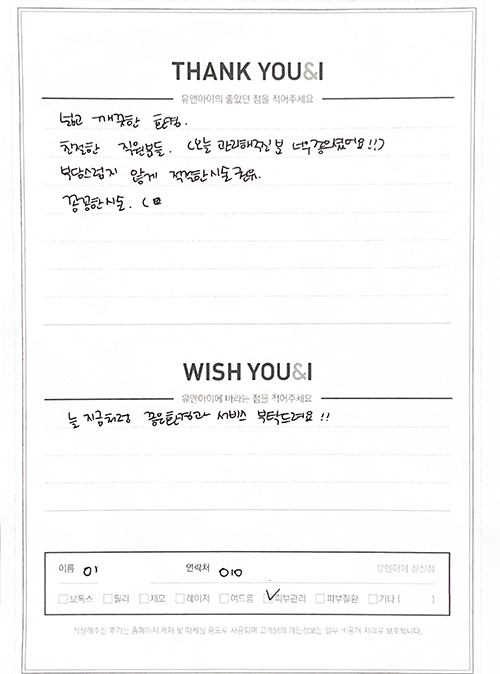 THANK YOU&I
유앤아이의 좋았던 점을 적어주세요
넓고 깨끗한 환경.
친절한 직원분들. (오늘 관리해주신분 너무감사했어요!!)
부담스럽지 않게 적절한시술권유.
꼼꼼한시술. (
WISH YOU&I
유앤아이에 바라는 점을 적어주세요
늘 지금처럼 좋은환경과 서비스 부탁드려요!!
이름 이 연락처 010 유앤아이
보톡스 필러 제모 레이저 여드름 피부관리 피부질환 기타 ( )
작성해주신 후기는 홈페이지 게재 및 마케팅 용도로 사용되며 고객님의 개인정보는 일부 비공개 처리로 보호됩니다.